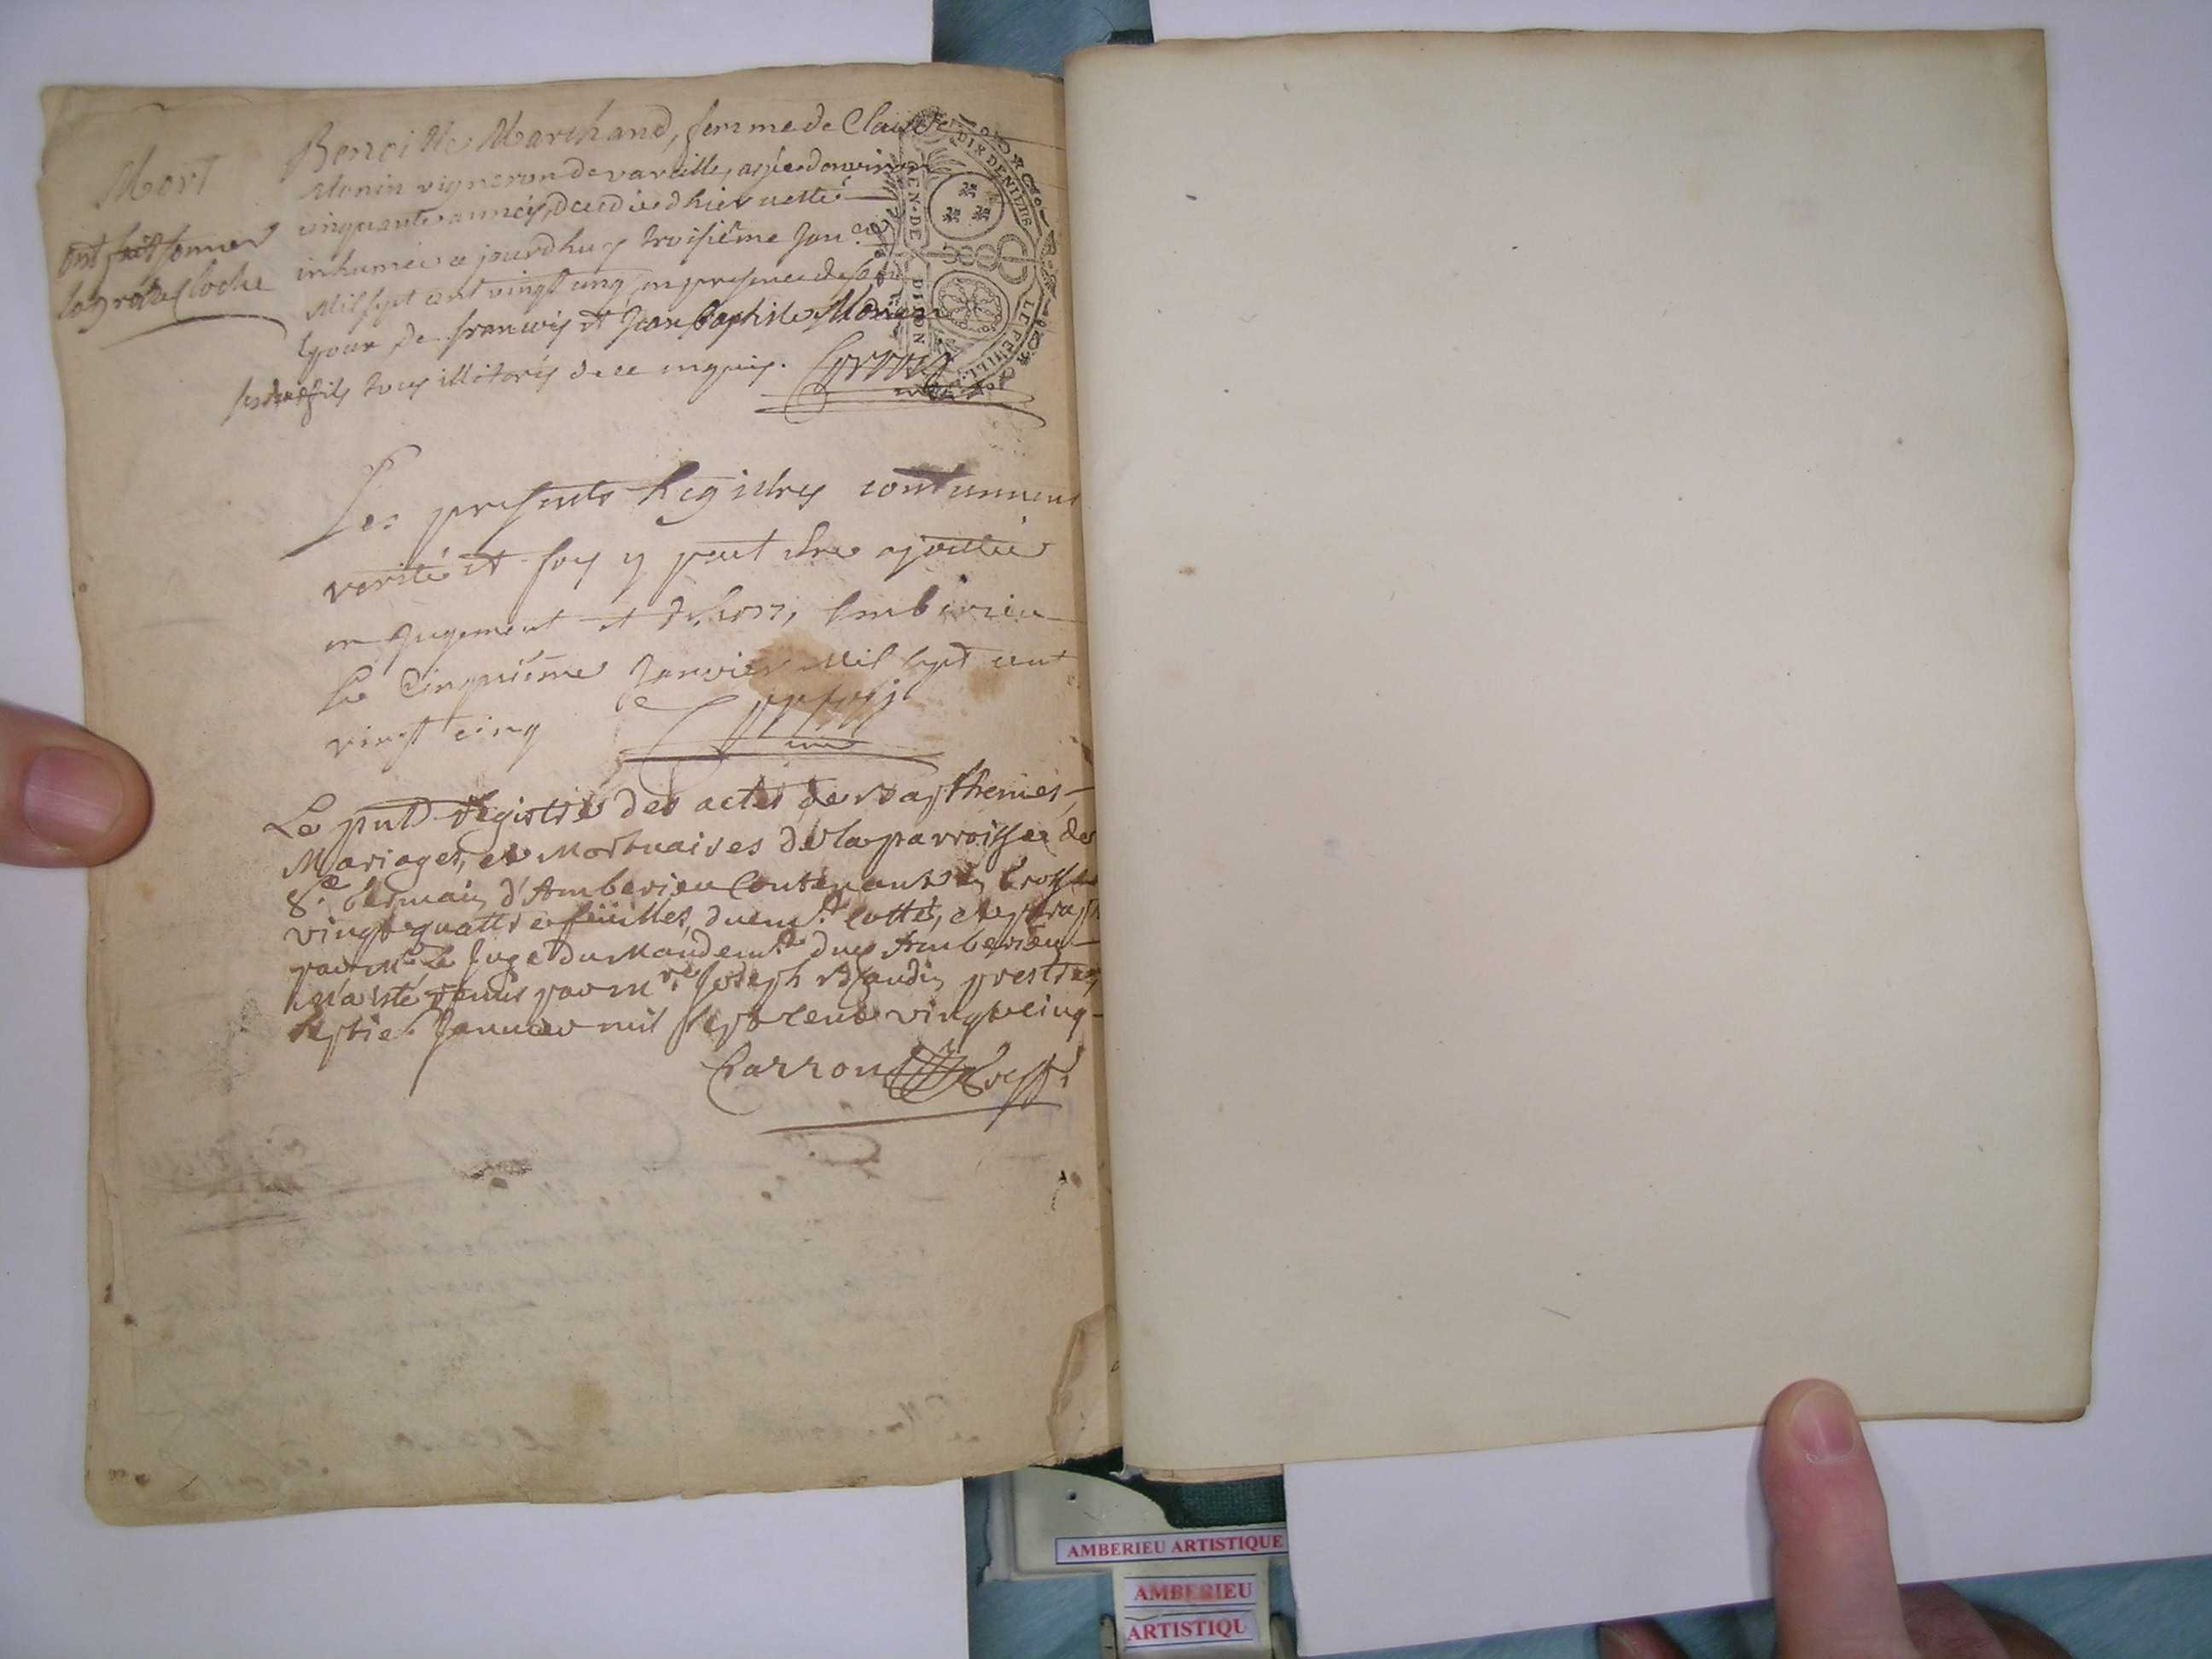 Mort
ont fait sonner
la grosse cloche
Benoitte Marchand, femme de Claude
Monin vigneron de vareilles, agée d'environ
cinquante années, decedée d'hier a esté
inhumée ce jourd'huy troisiéme Janer
Mil sept cent vingt cinq, en presence de son
Epoux, de francois et Jean baptiste Monin
ses deux fils tous illiterés de ce enquis.
Les presents Registres contiennent
verité et foy y peut estre ajoutée
en Jugement et dehors, Emberieu
le Cinquiéme Janvier Mil sept cent
vingt cinq
Le pnt Registre des actes de Bapthemes,
Mariages, et Mortuaires de la parroisse de
St Germain d'Amberieu Contenant en
vingt quattre feüilles, duemt cottés, et
par Mr le Juge du Mandemt dud Amberieu
m'a esté remis par Mre Joseph prestre
Janvier mil sept cent vingt cinq
Carron Greffr
GEN. DE DIJON
LE FEUILL.
AMBERIEU ARTISTIQUE
AMBERIEU
ARTISTIQU